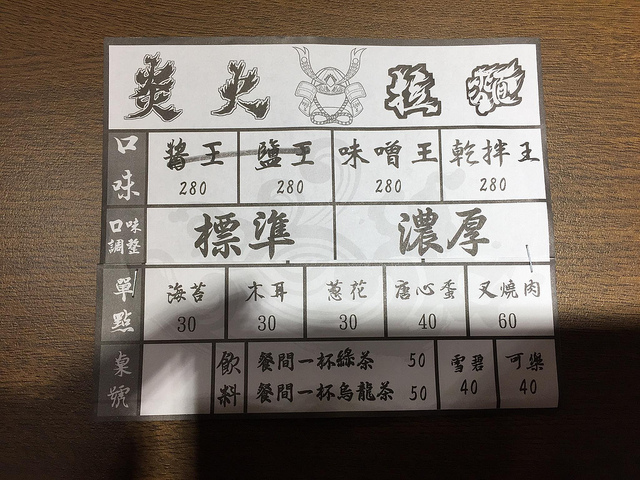 炎火拉麵
口味 醬王 鹽王 味噌王 乾拌王
280 280 280 280
口味調整 標準 濃厚
單點 海苔 木耳 蔥花 唐心蛋 叉燒肉
30 30 30 40 60
桌號 飲料 餐間一杯綠茶 50 雪碧 可樂
餐間一杯烏龍茶 50 40 40